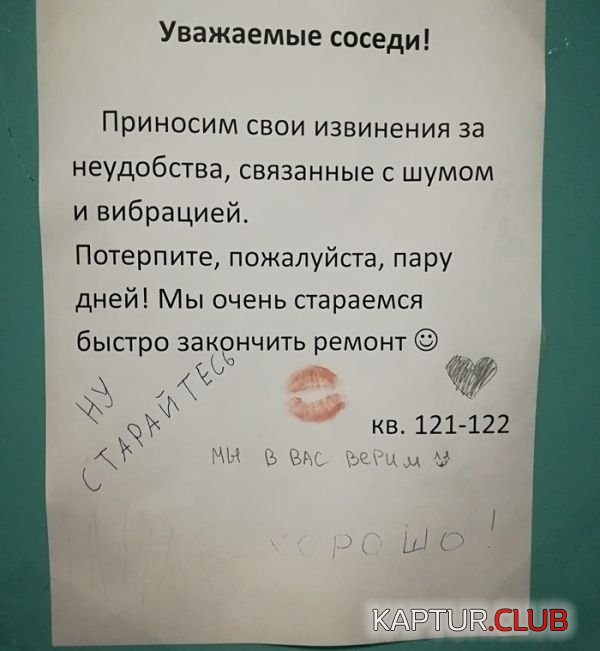 Уважаемые соседи!
Приносим свои извинения за
неудобства, связанные с шумом
и вибрацией.
Потерпите, пожалуйста, пару
дней! Мы очень стараемся
быстро закончить ремонт ☺
кв. 121-122
НУ
СТАРАЙТЕСЬ
МЫ В ВАС ВЕРИМ
ХОРОШО!
KAPTUR.CLUB